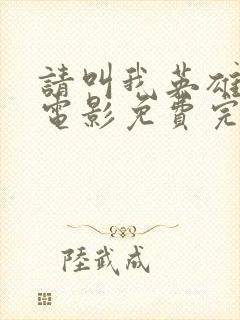 請叫我英雄
電影免費完
陸武成